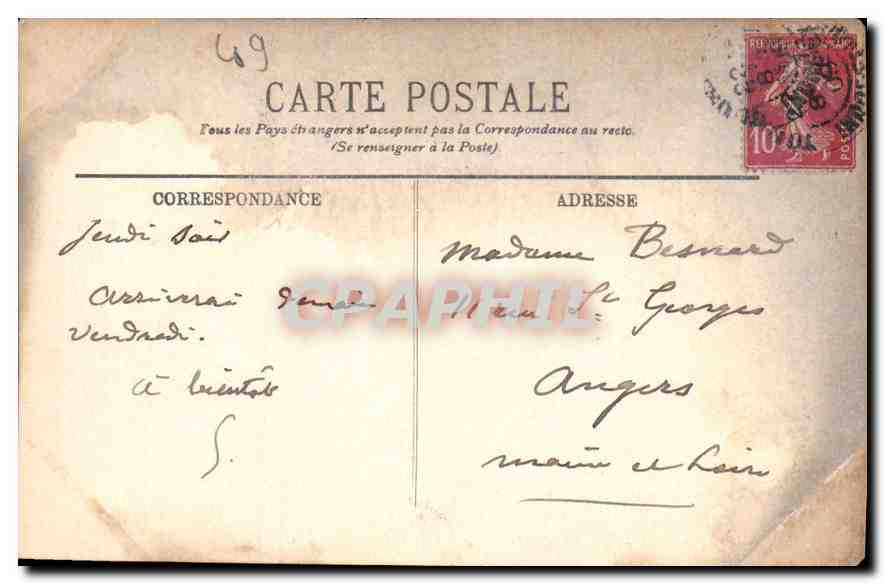 49
CARTE POSTALE
Tous les Pays étrangers n'acceptent pas la Correspondance au recto.
(Se renseigner à la Poste)
CORRESPONDANCE
ADRESSE
Jeudi soir
arriverai demain
Vendredi.
à bientôt
S.
Madame Besnard
St Georges
Angers
maine et Loire
CPAPHIL
10
POSTES